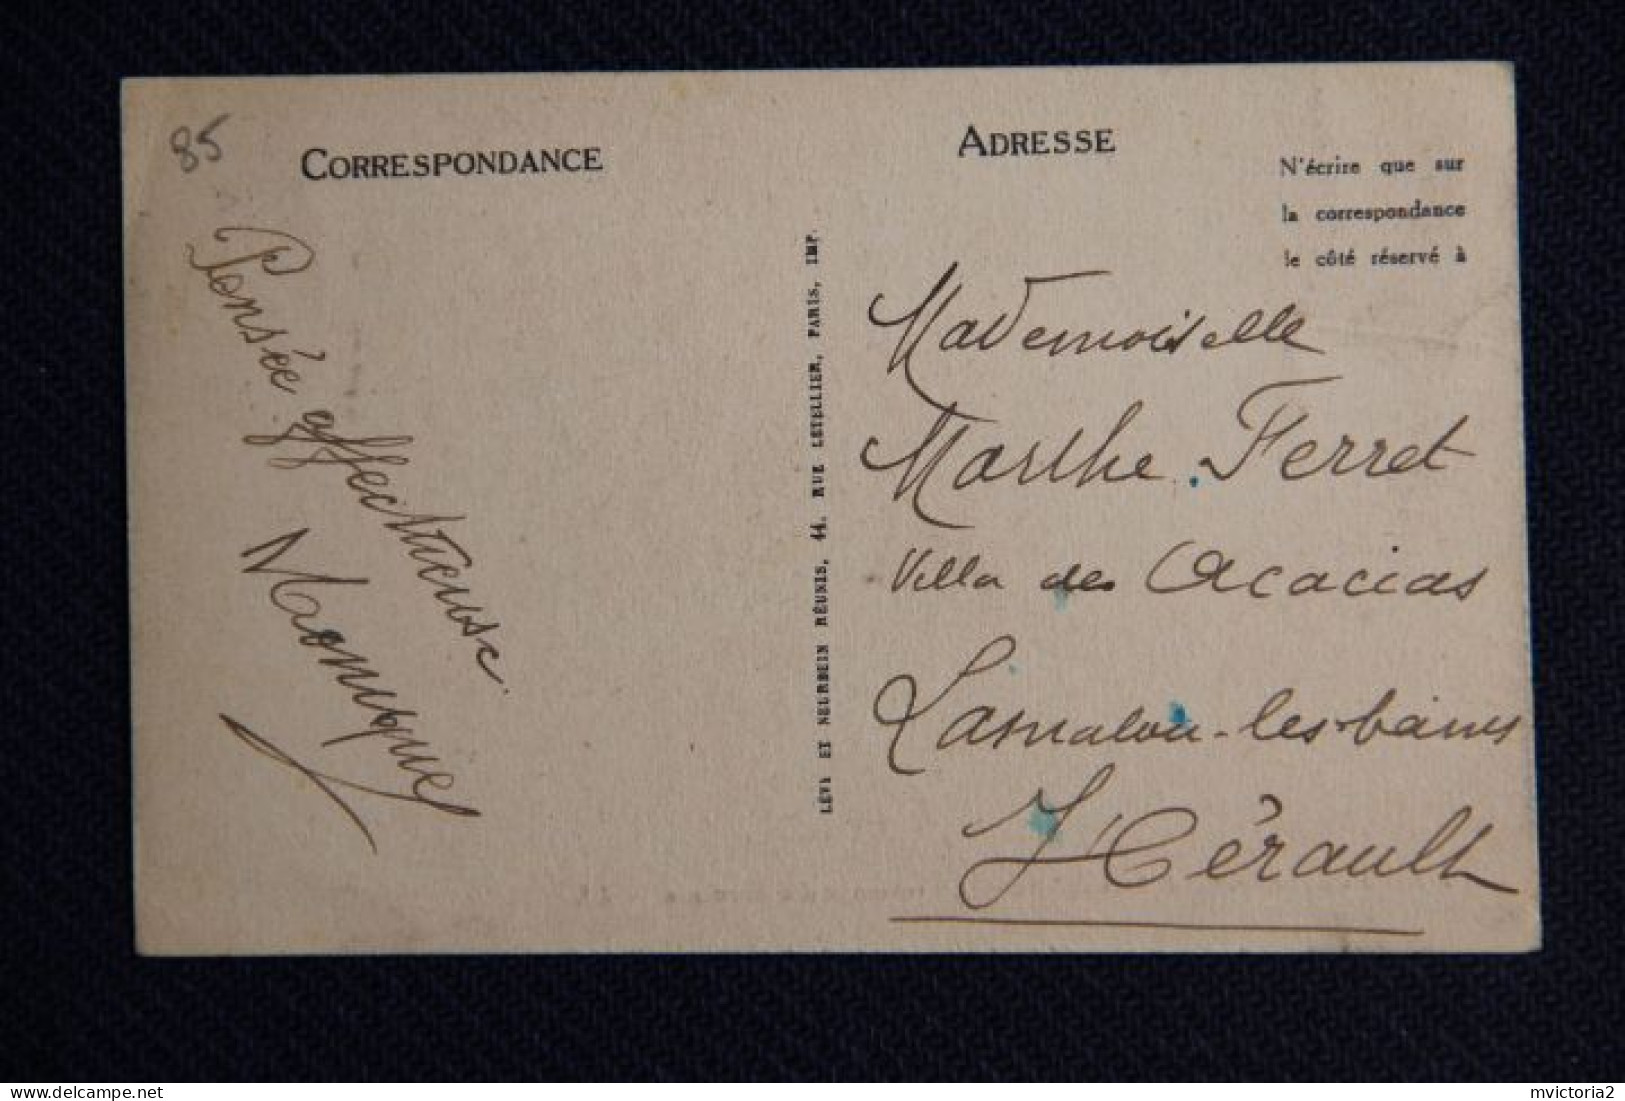 85
CORRESPONDANCE
Pensée affectueuse.
Monique
LÉVY ET NEURDEIN RÉUNIS, 44, RUE LETELLIER, PARIS, IMP.
ADRESSE
N'écrire que sur
la correspondance
le côté réservé à
Mademoiselle
Marthe Ferret
Villa des Acacias
Lamalou-les-bains
Hérault
mvictoria2